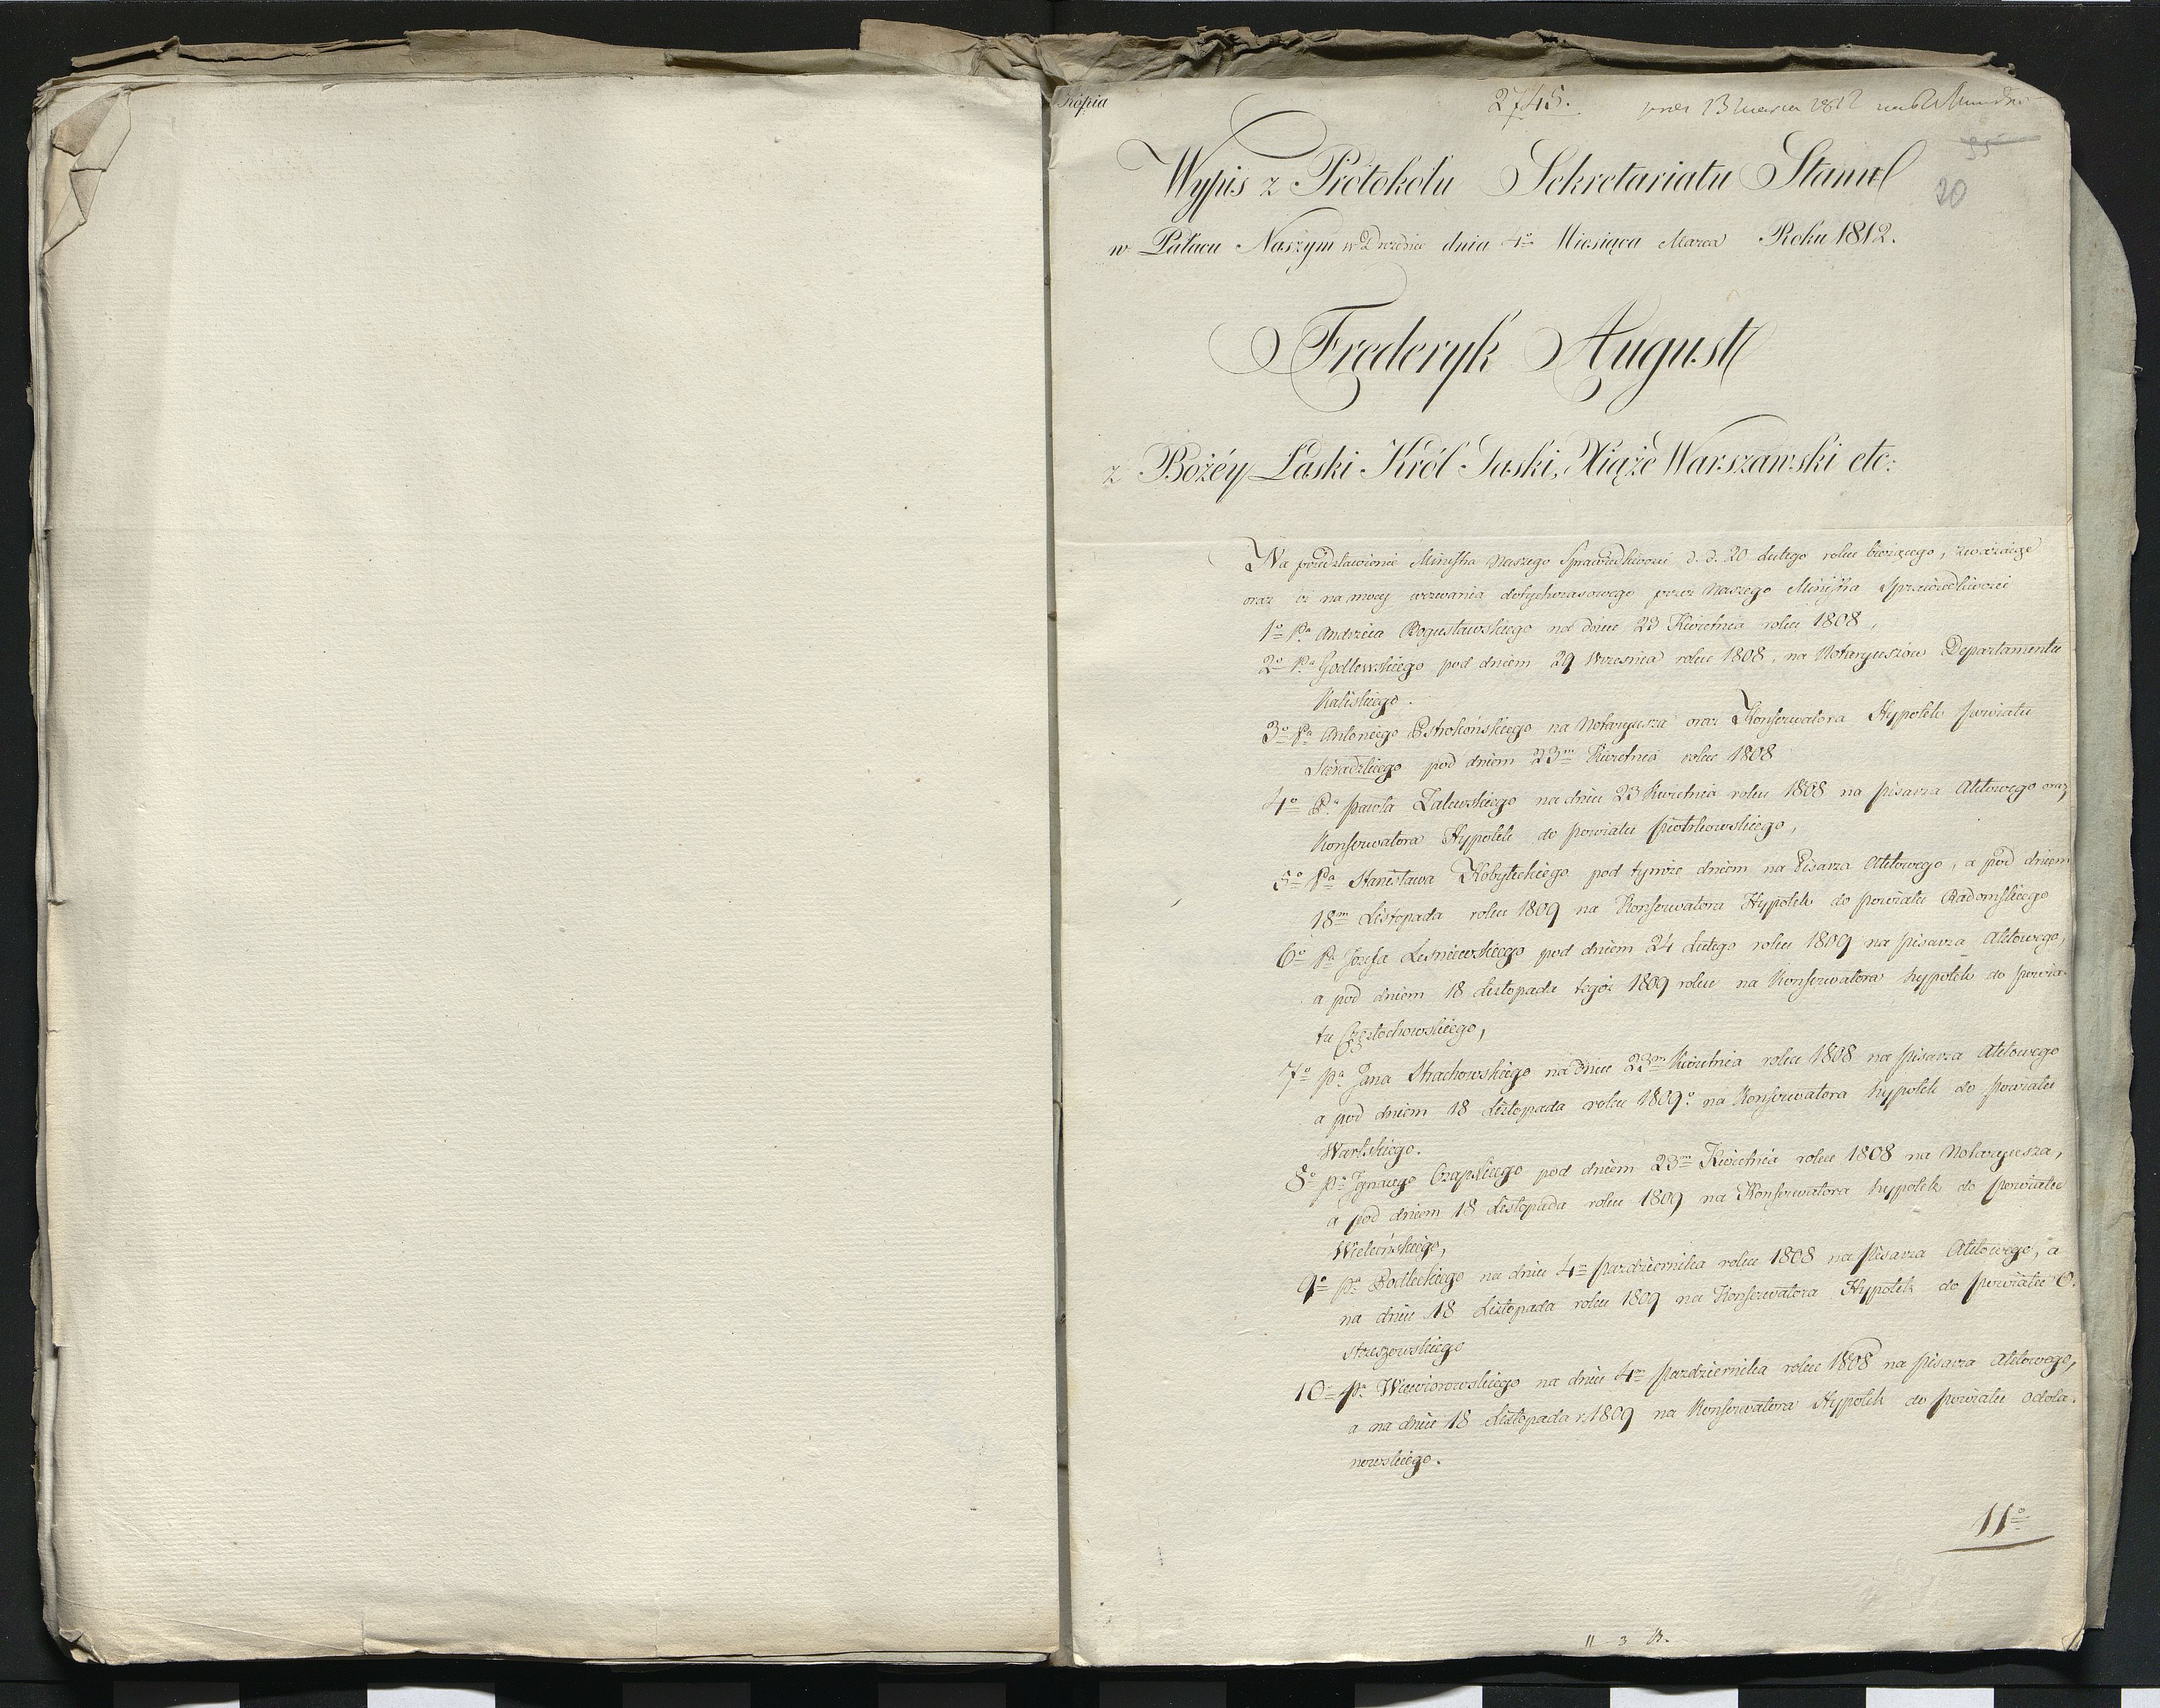 Kopia
2745.
13 marca 1812
55
20
Wypis z Protokołu Sekretariatu Stanu
w Pałacu Naszym w Dreznie dnia 4º Miesiąca Marca Roku 1812.
Frederyk August
z Bożéy Łaski Król Saski, Xiąże Warszawski etc:
Na przedstawienie Ministra Naszego Sprawiedliwości d. d. 20 Lutego roku bieżącego, zważaiąc
oraz iż na mocy wezwania dotychczasowego przez Naszego Ministra Sprawiedliwości
1º Pa Andrzeia Bogusławskiego na dniu 23 Kwietnia roku 1808,
2º Pa Godlewskiego pod dniem 29 Września roku 1808, na Notaryuszow Departamentu
Kaliskiego.
3º Pa Antoniego Ostrokońskiego na Notaryusza oraz Konserwatora Hypotek powiatu
Sieradzkiego pod dniem 23m Kwietnia roku 1808
4º Pa Pawła Zalewskiego na dniu 23 Kwietnia roku 1808 na pisarza Aktowego oraz
Konserwatora Hypotek do powiatu piotrkowskiego,
5º Pa Stanisława Kobyłeckiego pod tymże dniem na Pisarza Aktowego, a pod dniem
18m Listopada roku 1809 na Konserwatora Hypotek do powiatu Radomskiego
6º Pa Jozefa Lesniewskiego pod dniem 24 Lutego roku 1809 na pisarza Aktowego,
a pod dniem 18 Listopada tegoż 1809 roku na Konserwatora hypotek do powia-
tu Częstochowskiego,
7º Pa Jana Strachowskiego na dniu 23m Kwietnia roku 1808 na pisarza Aktowego
a pod dniem 18 Listopada roku 1809º na Konserwatora hypotek do powiatu
Wartskiego.
8º Pa Ignacego Czapskiego pod dniem 23m Kwietnia roku 1808 na Notaryusza,
a pod dniem 18 Listopada roku 1809 na Konserwatora hypotek do powiatu
Wieluńskiego,
9º Pa Podleckiego na dniu 4m pazdziernika roku 1808 na pisarza Aktowego, a
na dniu 18 Listopada roku 1809 na Konserwatora Hypotek do powiatu O-
strzeszowskiego
10º Pa Wiewiorowskiego na dniu 4m pazdziernika roku 1808 na pisarza Aktowego,
a na dniu 18 Listopada r. 1809 na Konserwatora Hypotek do powiatu Odola-
nowskiego.
11º